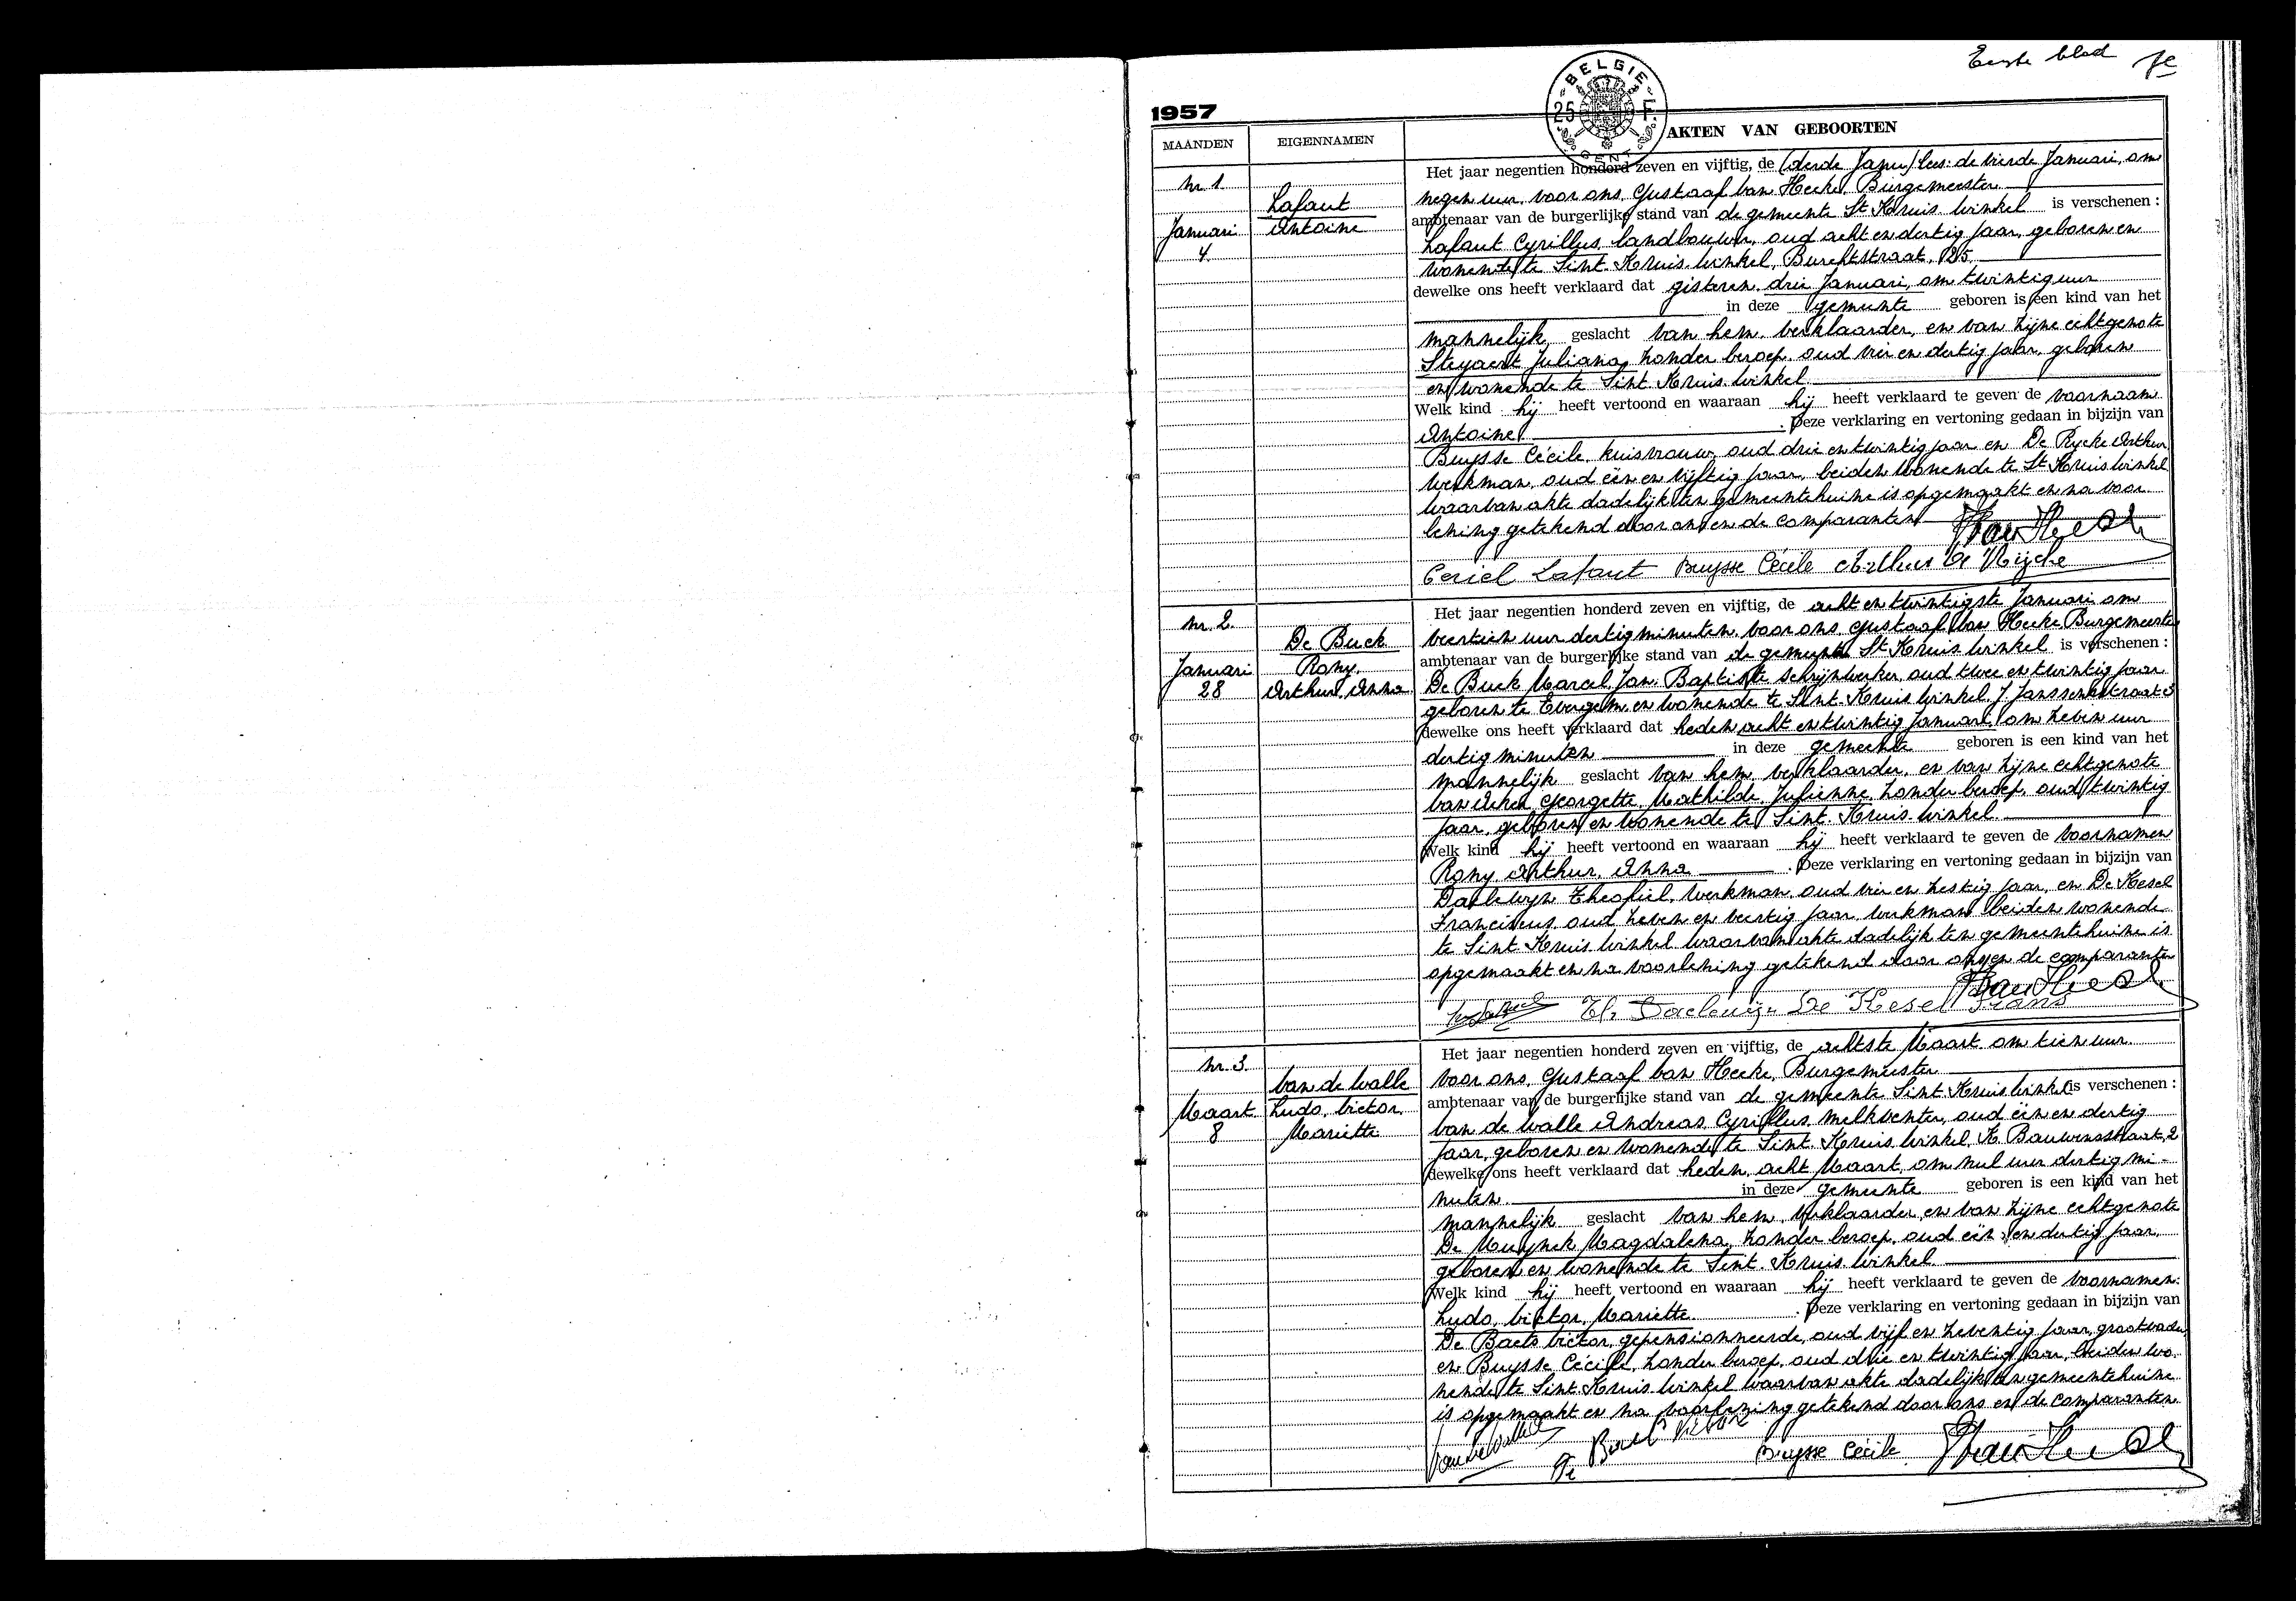 Eerste blad 1e
BELGIE
25 F.
GENT
1957
MAANDEN EIGENNAMEN AKTEN VAN GEBOORTEN
nr. 1.
Januari
4.
Lafaut
Antoine
Het jaar negentien honderd zeven en vijftig, de (derde Janu) lees: de vierde Januari, om
negen uur, voor ons, Gustaaf Van Hecke, Burgemeester
ambtenaar van de burgerlijke stand van de gemeente St Kruis Winkel is verschenen :
Lafaut Cyrillus, landbouwer, oud acht en dertig jaar, geboren en
wonende te Sint Kruis Winkel, Burchtstraat, 25,
dewelke ons heeft verklaard dat gisteren, drie Januari, om twintig uur
in deze gemeente geboren is een kind van het
mannelijk geslacht van hem, verklaarder, en van zijne echtgenote
Steyaert Juliana, zonder beroep, oud vier en dertig jaar, geboren
en wonende te Sint Kruis Winkel.
Welk kind hij heeft vertoond en waaraan hij heeft verklaard te geven de voornaam
Antoine . Deze verklaring en vertoning gedaan in bijzijn van
Buysse Cécile, huisvrouw, oud drie en twintig jaar en De Rycke Arthur
werkman, oud één en vijftig jaar, beiden wonende te St Kruis Winkel
waarvan akte dadelijk ten gemeentehuize is opgemaakt en na voor
lezing getekend door ons en de comparanten
Ceriel Lafaut Buysse Cécile Arthur De Rijcke
nr. 2.
Januari
28
De Buck
Rony,
Arthur, Anna
Het jaar negentien honderd zeven en vijftig, de acht en twintigste Januari om
veertien uur dertig minuten, voor ons, Gustaaf Van Hecke Burgemeester
ambtenaar van de burgerlijke stand van de gemeente St Kruis Winkel is verschenen :
De Buck Marcel, Jan, Baptiste schrijnwerker, oud twee en twintig jaar
geboren te Evergem, en wonende te Sint Kruis Winkel, J. Janssensstraat 3
dewelke ons heeft verklaard dat heden acht en twintig Januari, om zeven uur
dertig minuten in deze gemeente geboren is een kind van het
mannelijk geslacht van hem, verklaarder, en van zijne echtgenote
Georgette, Mathilde, Julienne, zonder beroep, oud twintig
jaar, geboren en wonende te Sint Kruis Winkel.
Welk kind hij heeft vertoond en waaraan hij heeft verklaard te geven de voornamen
Rony, Arthur, Anna . Deze verklaring en vertoning gedaan in bijzijn van
Daelewyn Theofiel, werkman, oud vier en zestig jaar, en De Kesel
Franciscus, oud zeven en veertig jaar, werkman beiden wonende
te Sint Kruis Winkel waarvan akte dadelijk ten gemeentehuize is
opgemaakt en na voorlezing getekend door ons en de comparanten
Th. Daelewijn De Kesel Frans
nr. 3.
Maart
8
Van de Walle
Ludo, Victor,
Mariette
Het jaar negentien honderd zeven en vijftig, de achtste Maart om tien uur
voor ons, Gustaaf Van Hecke, Burgemeester
ambtenaar van de burgerlijke stand van de gemeente Sint Kruis Winkel is verschenen :
Van de Walle Andreas, Cyrillus, melkventer, oud één en dertig
jaar, geboren en wonende te Sint Kruis Winkel, K. Bauwensstraat, 2
dewelke ons heeft verklaard dat heden, acht Maart, om nul uur dertig mi-
nuten in deze gemeente geboren is een kind van het
mannelijk geslacht van hem, verklaarder, en van zijne echtgenote
De Muynck Magdalena, zonder beroep, oud één en dertig jaar,
geboren en wonende te Sint Kruis Winkel
Welk kind hij heeft vertoond en waaraan hij heeft verklaard te geven de voornamen:
Ludo, Victor, Mariette. . Deze verklaring en vertoning gedaan in bijzijn van
De Baets Victor, gepensionneerde, oud vijf en zeventig jaar, grootvader
en Buysse Cécile, zonder beroep, oud drie en twintig jaar, beiden wo
nende te Sint Kruis Winkel waarvan akte dadelijk ten gemeentehuize
is opgemaakt en na voorlezing getekend door ons en de comparanten
Van de Walle De Baets Victor Buysse Cécile